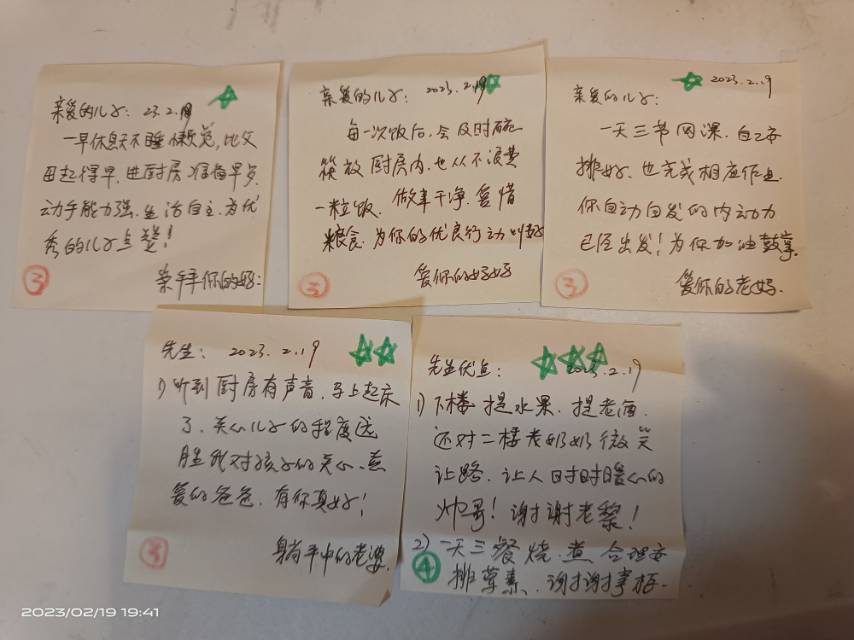 亲爱的儿子: 23.2.19
一早休息天不睡懒觉,比父
母起得早,进厨房准备早岁,
动手能力强,生活自主,为优
秀的儿子点赞!
你的妈:
③
亲爱的儿子: 2023.2.19
每一次饭后,会及时碗
筷放厨房内,也从不浪费
一粒饭,做事干净,爱惜
粮食,为你的优良行动叫好
爱你的妈妈
③
亲爱的儿子: 2023.2.19
一天三节网课,自己安
排好,也完成相应作业
你自动自发的内动力
已经出发!为你加油鼓掌.
爱你的老妈.
③
先生: 2023.2.19
1)听到厨房有声音,马上起床
了,关心儿子的程度远
胜我对孩子的关心,慈
爱的爸爸,有你真好!
躺平中的老婆
③
先生优点: 2023.2.19
1)下楼提水果,提老酒,
还对二楼老奶奶微笑
让路,让人时时暖心的
帅哥!谢谢老黎!
2)一天三餐烧,煮,合理安
排荤素,谢谢
④
2023/02/19 19:41